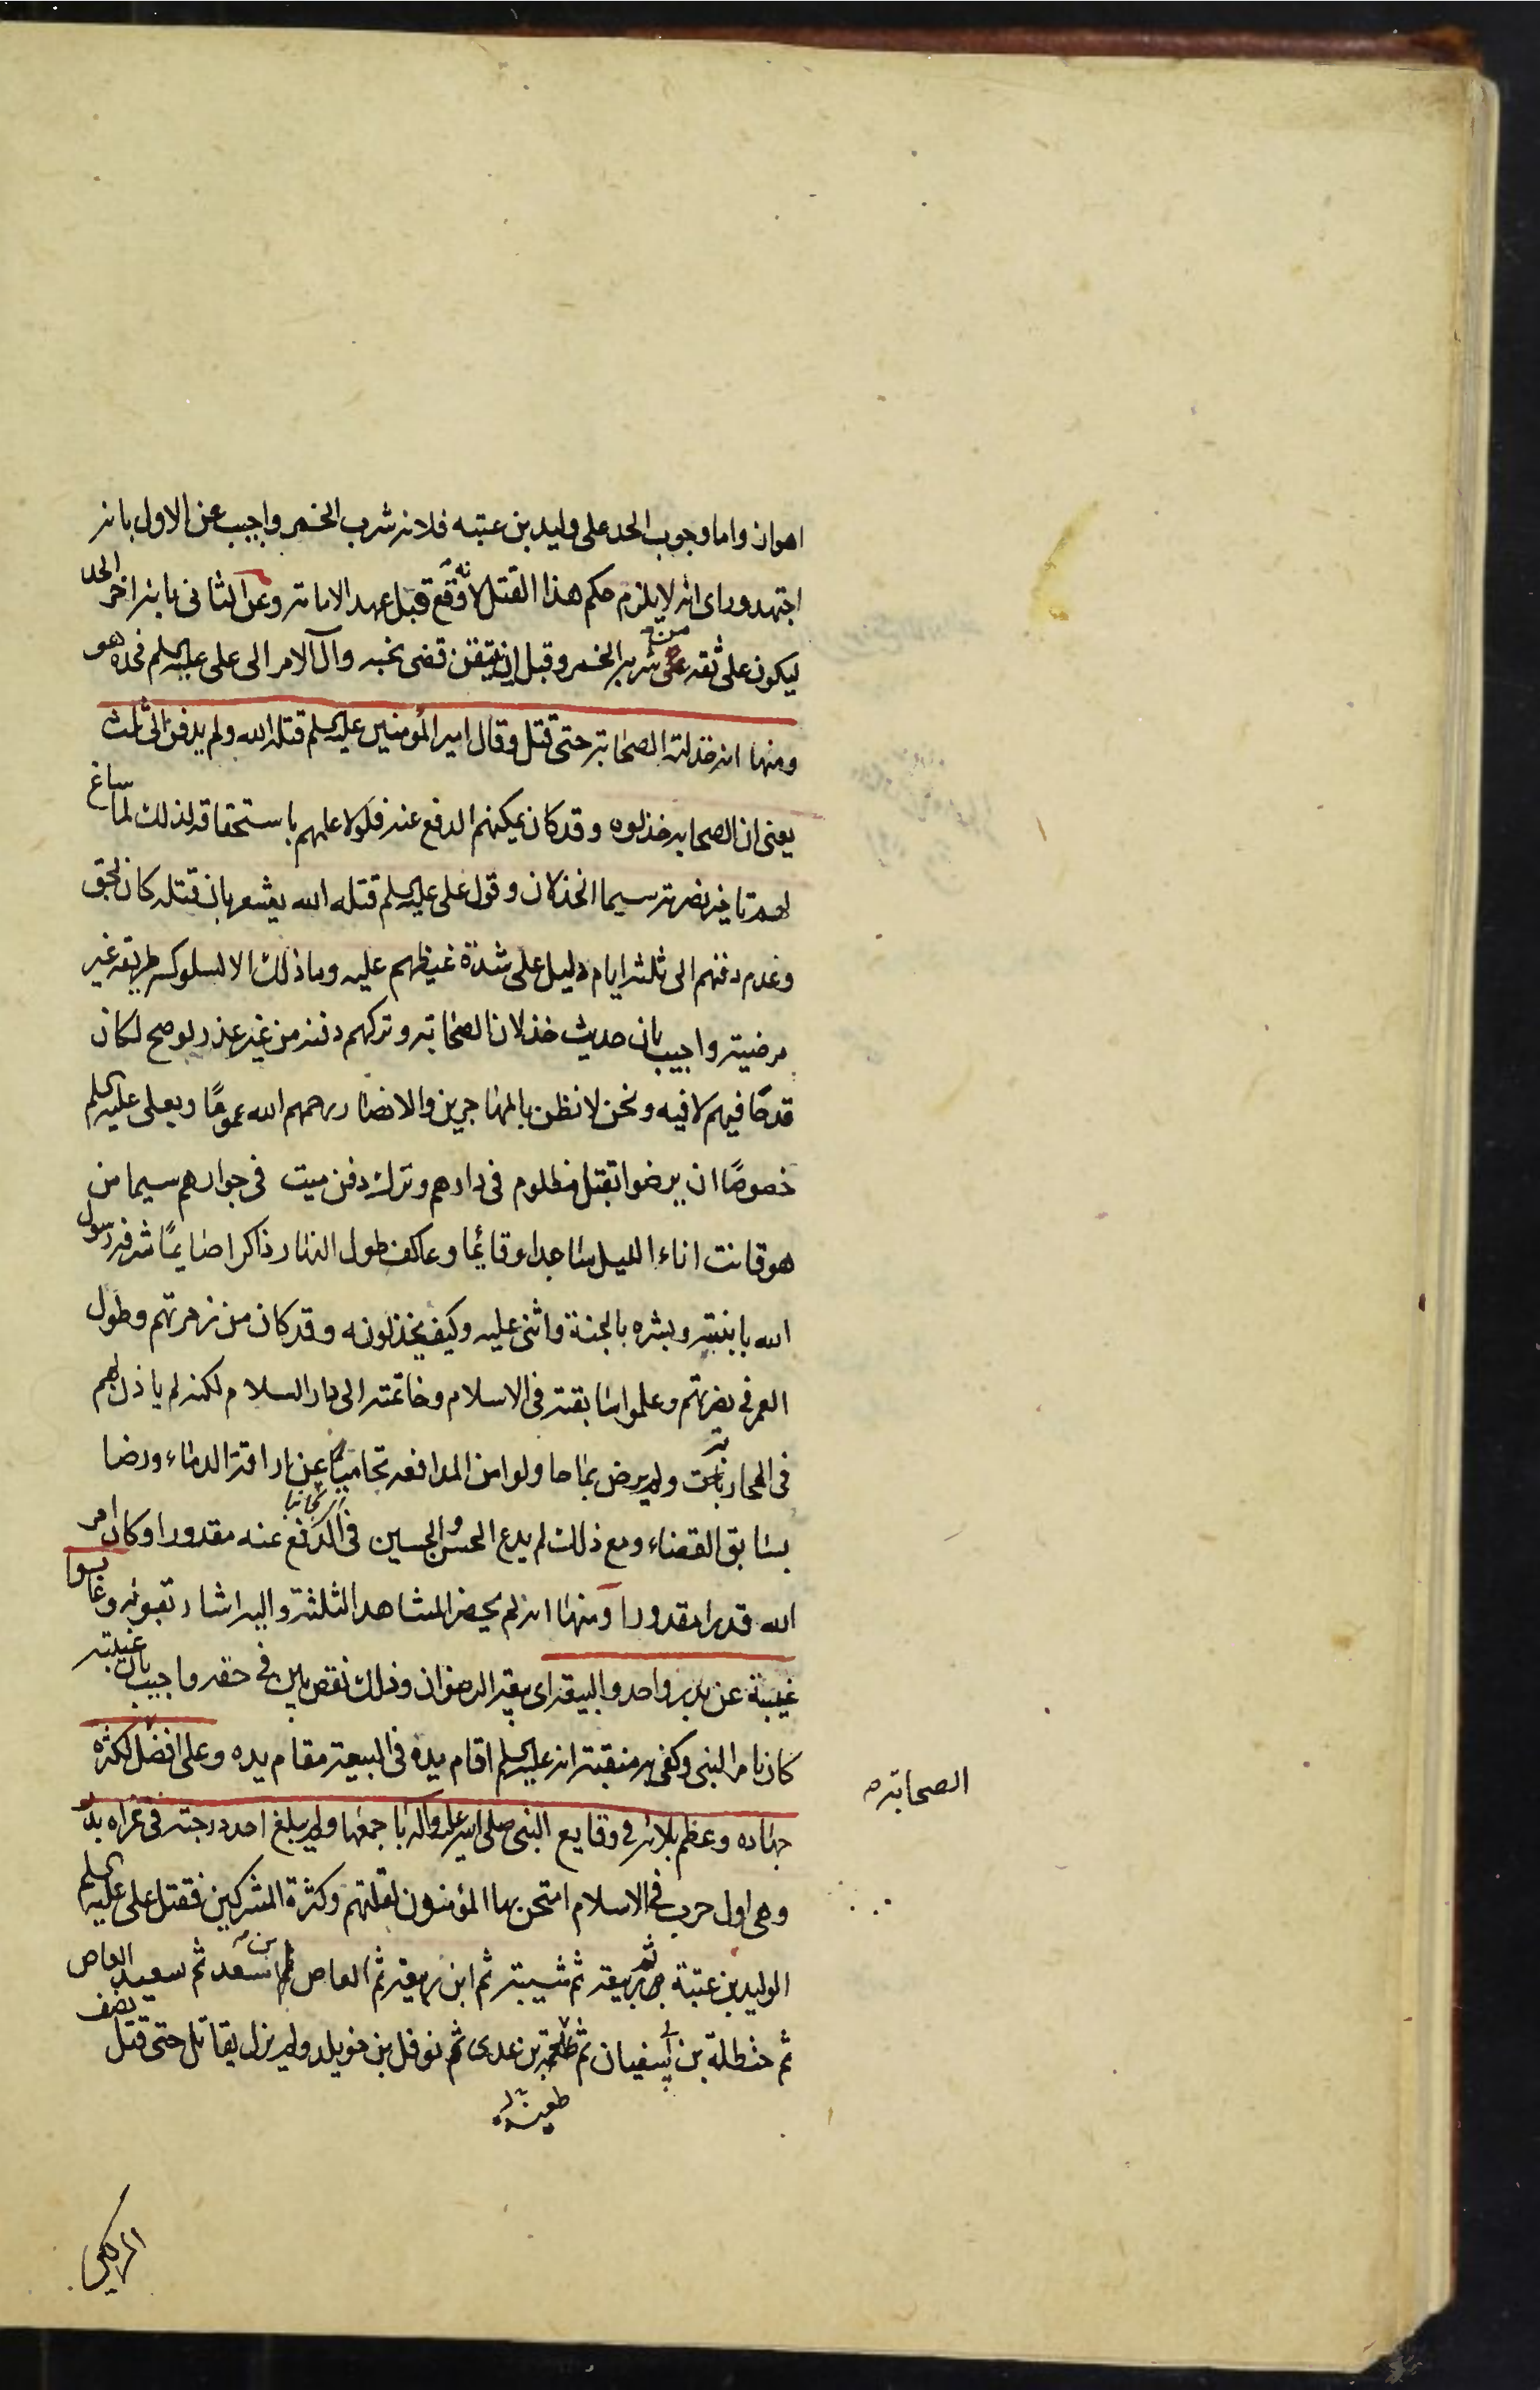 اهوان واما وجوب الحد على وليد بن عتبه فلانه شرب الخمر واجيب عن الاول بانه
اجتهد وراى انه لا يلزم حكم هذا القتل لانه وقع قبل عهد الامامة وعن الثانى بانه اخر الحد
ليكون على ثقه من شربه الخمر وقبل ان يتيقن قضى نحبه وآل الامر الى على عليه السلم فحده هو
ومنها انه خذلته الصحابة حتى قتل وقال امير المؤمنين عليه السلم قتله الله ولم يدفن الى ثلث
يعنى ان الصحابه خذلوه وقد كان يمكنهم الدفع عنه فلولا علمهم باستحقاقه لذلك لما ساغ
لهم تاخير نصرته سيما الخذلان وقول على عليه السلم قتله الله يشعر بان قتله كان بحق
وعدم دفنهم الى ثلثة ايام دليل على شدة غيظهم عليه وما ذلك الا لسلوكه طريقه غير
مرضية واجيب بان حديث خذلان الصحابة وتركهم دفنه من غير عذر لو صح لكان
قدحًا فيهم لا فيه ونحن لا نظن بالمهاجرين والانصار رحمهم الله عمومًا وبعلى عليه السلم
خصوصًا ان يرضوا بقتل مظلوم فى دارهم وترك دفن ميت فى جوارهم سيما من
هو قانت اناء الليل ساجدا وقائما وعاكف طول النهار ذاكرا صايمًا شرفه رسول
الله بابنتيه وبشره بالجنة واثنى عليه وكيف يخذلونه وقد كان من زمرتهم وطول
العمر فى نصرتهم وعلموا سابقته فى الاسلام وخاتمته الى دار السلام لكنه لم ياذن لهم
فى المحاربة ولم يرض بما حاولوا من المدافعه تحاميًا عن اراقة الدماء ورضا
بسابق القضاء ومع ذلك لم يدع الحسن والحسين فى الدفع عنه مقدورا وكان امر
الله قدرا مقدورا ومنها انه لم يحضر المشاهد الثلثة واليه اشار بقوله وعابوا
غيبته عن بدر واحد والبيعة اى بيعة الرضوان وذلك نقص بين فى حقه واجيب بان غيبته
كان بامر النبى وكفى به منقبة انه عليه السلم اقام يده فى البيعة مقام يده وعلى افضل لكثرة
الصحابة
جهاده وعظم بلائه فى وقايع النبى صلى الله عليه وآله باجمعها ولم يبلغ احد درجته فى غزاة بدر
وهى اول حرب فى الاسلام امتحن بها المؤمنون لقلتهم وكثرة المشركين فقتل على عليه السلم
الوليد بن عتبة ثم ربيعة ثم شيبة ثم ابن ربيعة ثم العاص بن سعد ثم سعيد العاص
ثم حنظلة بن ابى سفيان ثم طعمة بن عدى ثم نوفل بن خويلد ولم يزل يقاتل حتى قتل نصف
طعيمة
المشركين